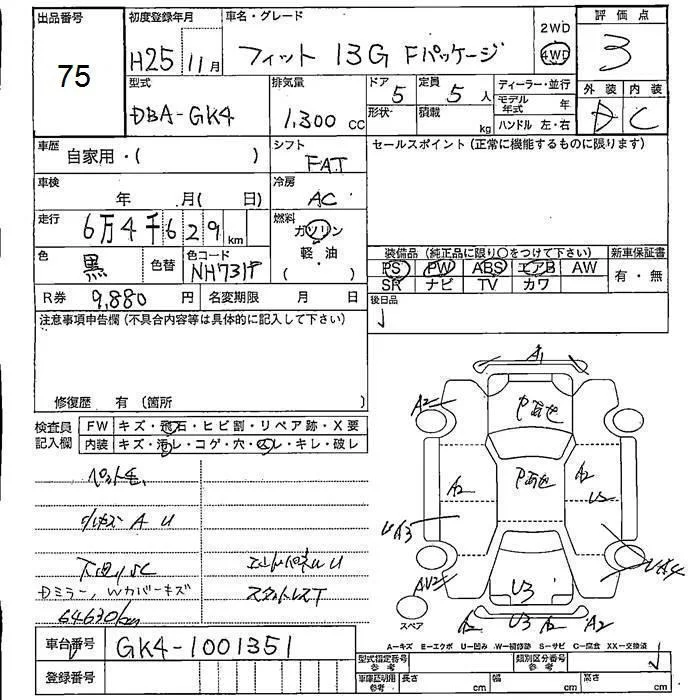 出品番号
75
初度登録年月
H25 11月
車名・グレード
フィット 13G Fパッケージ
2WD
4WD
評価点
3
型式
DBA-GK4
排気量
1,300 CC
ドア 5
定員 5 人
形状
積載 kg
ディーラー・並行
モデル年式 年
ハンドル 左・右
外装 内装
D C
車歴 自家用・( )
シフト
FAT
セールスポイント(正常に機能するものに限ります)
車検 年 月( 日)
冷房
AC
走行
6万4千629 km
燃料
ガソリン
軽・油
( )
色
黒
色替
色コード
NH731P
装備品 (純正品に限り○をつけて下さい)
新車保証書
PS PW ABS エアB AW
有・無
SR ナビ TV カワ
R券 9,880 円
名変期限 月 日
後日品
注意事項申告欄(不具合内容等は具体的に記入して下さい)
修復歴 有(箇所 )
検査員記入欄
FW キズ・飛石・ヒビ割・リペア跡・X要
内装 キズ・汚レ・コゲ・穴・スレ・キレ・破レ
ペット毛
小キズ A U
下回りSC
エンドパネルU
Dミラー、Wカバーキズ
スタットレスT
64630km
A1
A2
Pあせ
Pあせ
A2
A2
U2
UA3
UA4
AU2
U3
A2
U3
A2
A2
スペア
車台番号
GK4-1001351
登録番号
A－キズ E－エクボ U－凹み W－補修跡 S－サビ C－腐食 XX－交換済
型式指定番号 参考
類別区分番号 参考
車庫証明用 参考
長さ cm
幅 cm
高さ cm